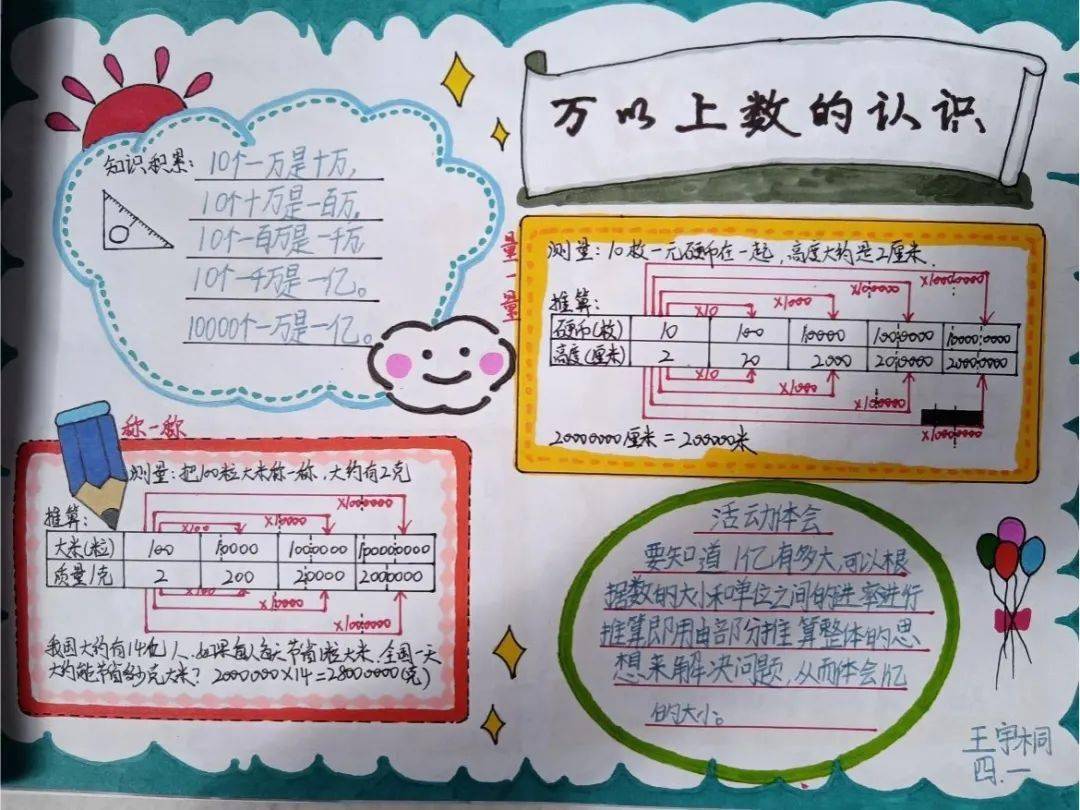 万以上数的认识
知识积累：10个一万是十万，
10个十万是一百万，
10个一百万是一千万
10个一千万是一亿。
10000个一万是一亿。
量一量
测量：10枚一元硬币在一起，高度大约是2厘米．
推算：
×10 ×1000 ×100000 ×10000000
硬币(枚) 10 100 10000 1000000 100000000
高度(厘米) 2 20 2000 200000 20000000
×10 ×1000 ×100000 ×10000000
20000000厘米=200000米
称一称
测量：把100粒大米称一称．大约有2克
推算：
×100 ×10000 ×1000000
大米(粒) 100 10000 1000000 100000000
质量1克 2 200 20000 2000000
×100 ×10000 ×1000000
我国大约有14亿人．如果每人每天节省1粒大米．全国一天
大约能节省多少克大米？2000000×14=28000000(克)
活动体会
要知道1亿有多大，可以根
据数的大小和单位之间的进率进行
推算即用由部分推算整体的思
想来解决问题，从而体会1亿
的大小。
王宇桐
四．一